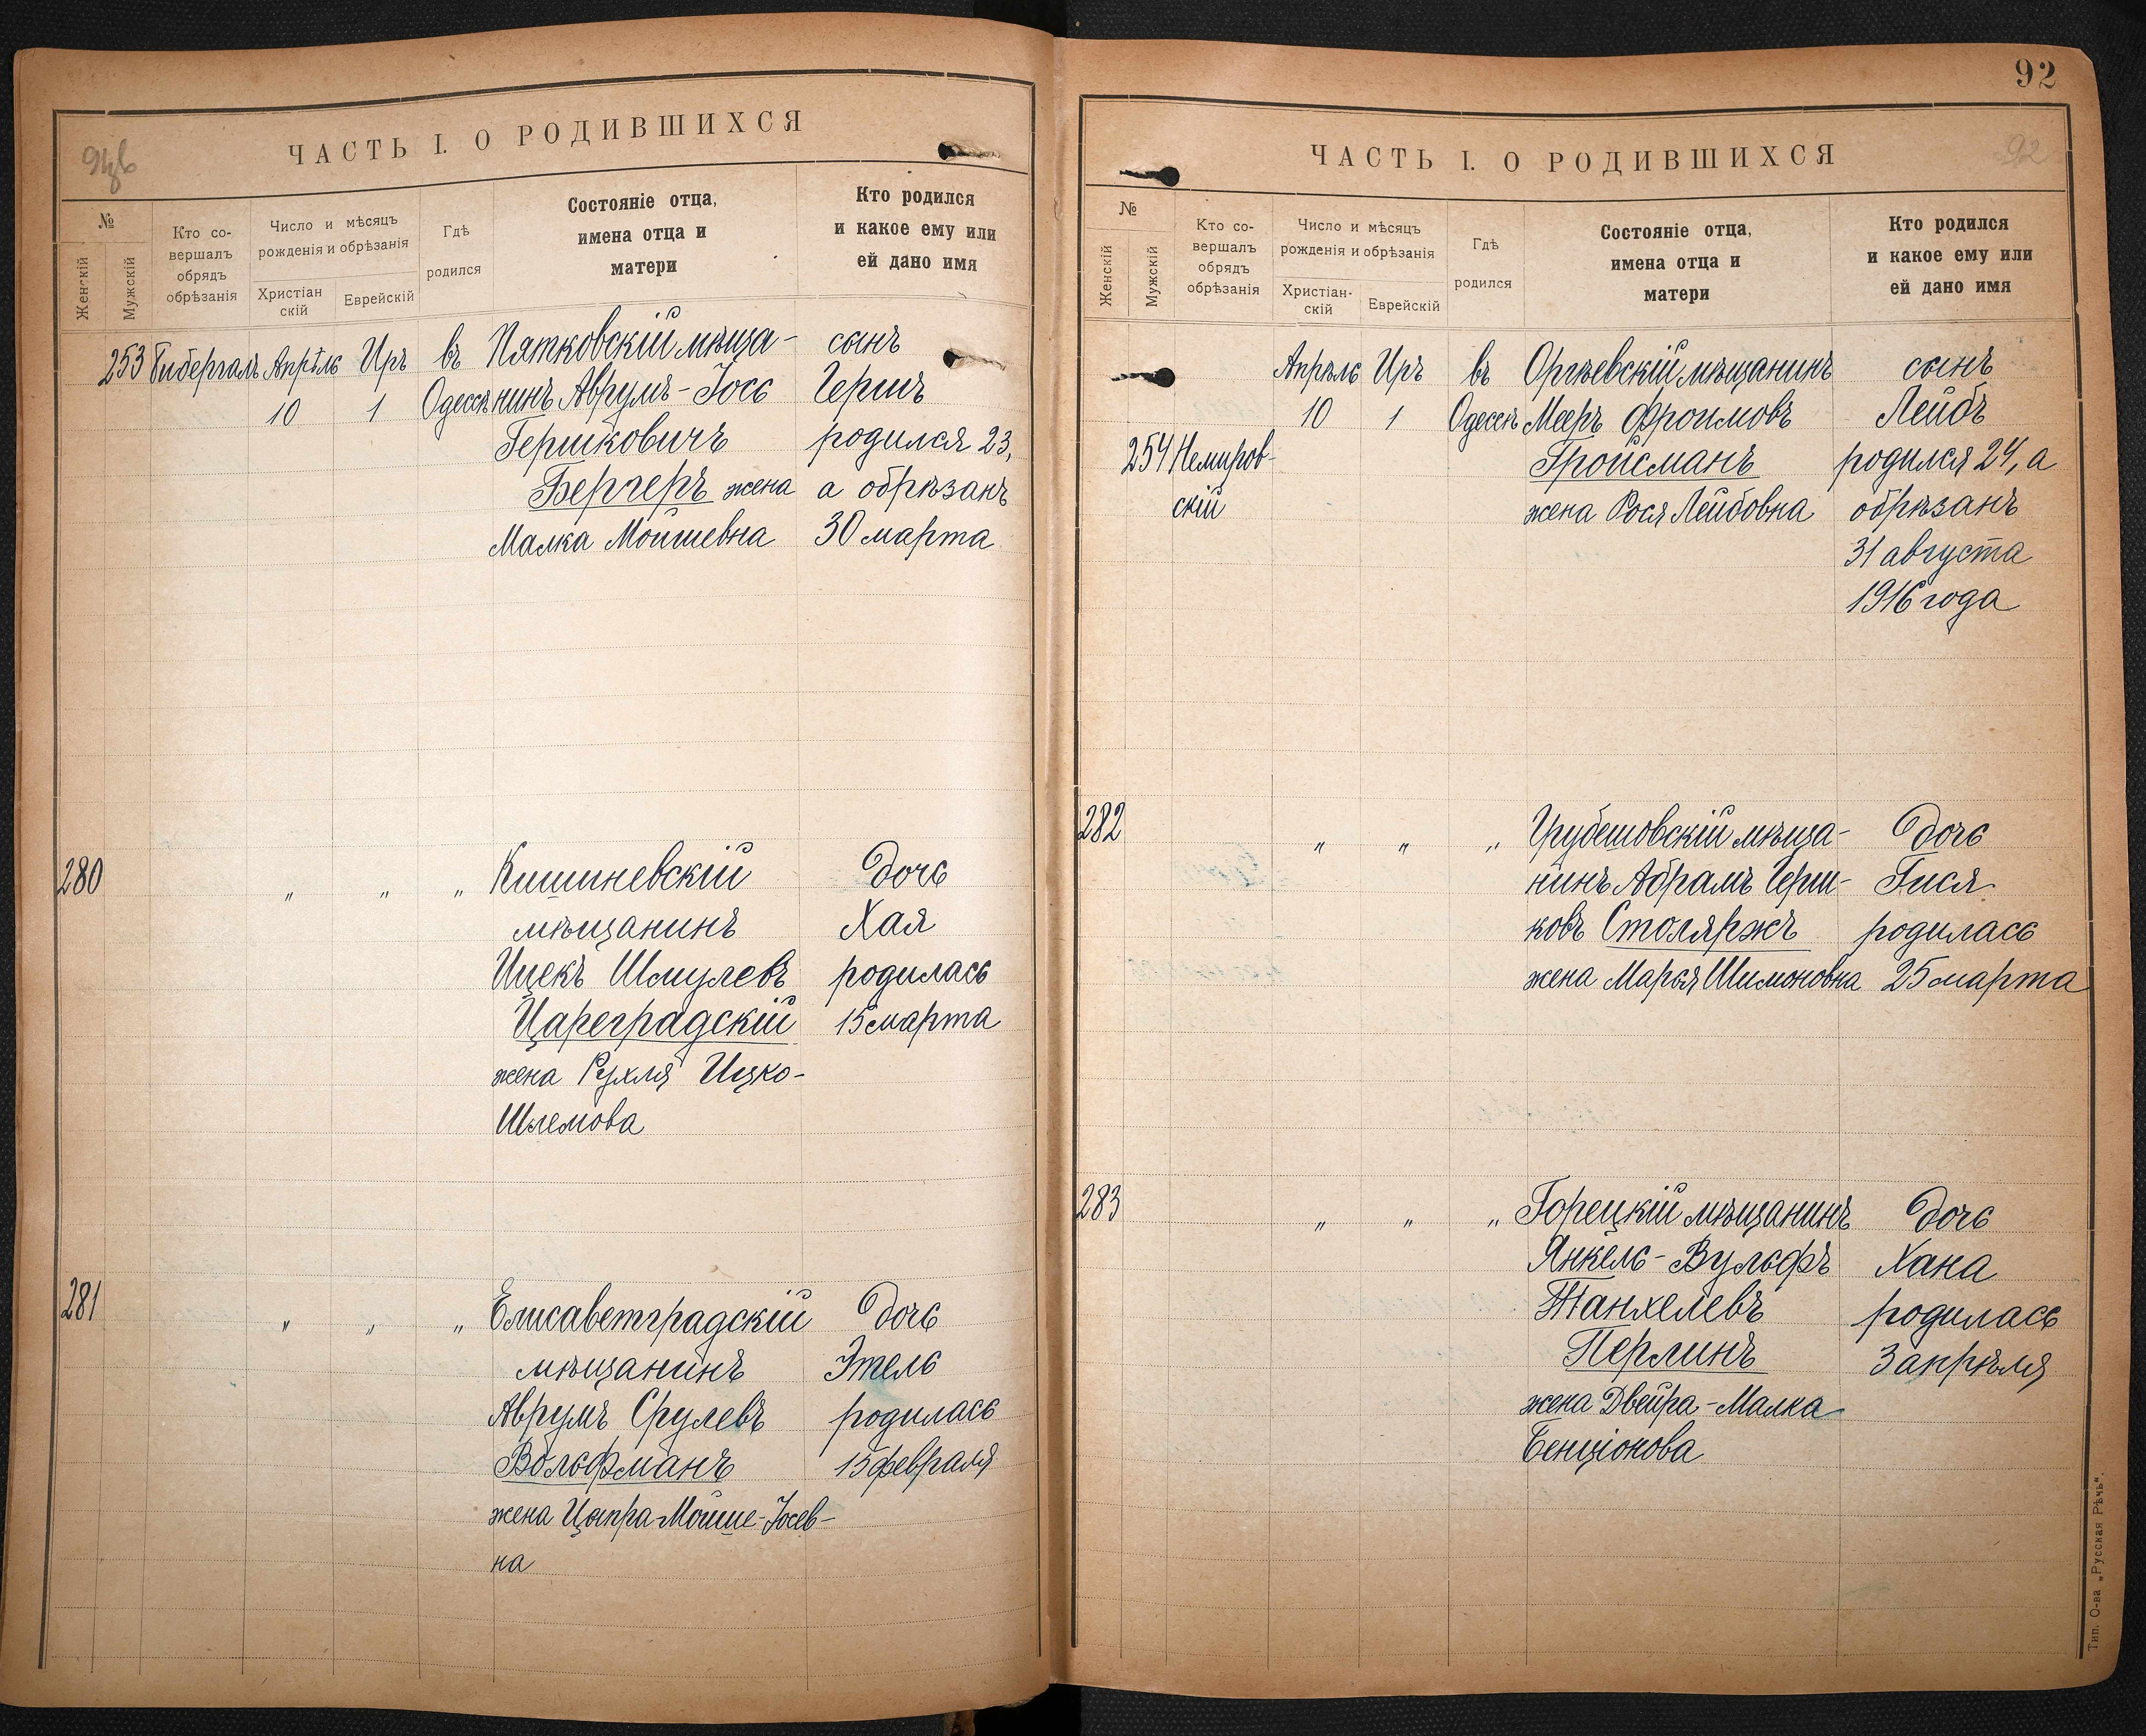 92
ЧАСТЬ I. О РОДИВШИХСЯ
№
Женскій
Мужскій
Кто со-
вершалъ
обрядъ
обрѣзанія
Число и мѣсяцъ
рожденія и обрѣзанія
Христіан
скій
Еврейскій
Гдѣ
родился
Состояніе отца,
имена отца и
матери
Кто родился
и какое ему или
ей дано имя
253 Гибергалъ Апрѣль Иръ въ Пятковскій мѣща- сынъ
10 1 Одессѣ нинъ Аврумъ-Іось Гершъ
Гершковичъ родился 23,
Бергеръ жена а обрѣзанъ
Малка Мойшевна 30 марта
280 „ „ „ Кишиневскій дочь
мѣщанинъ Хая
Ицекъ Шмулевъ родилась
Цареградскій 15 марта
жена Рухля Ицко-
Шлемова
281 „ „ „ Елисаветградскій дочь
мѣщанинъ Этель
Аврумъ Срулевъ родилась
Вольфманъ 15 февраля
жена Ципра-Мойше-Іосев-
на
ЧАСТЬ I. О РОДИВШИХСЯ
92
№
Женскій
Мужскій
Кто со-
вершалъ
обрядъ
обрѣзанія
Число и мѣсяцъ
рожденія и обрѣзанія
Христіан-
скій
Еврейскій
Гдѣ
родился
Состояніе отца,
имена отца и
матери
Кто родился
и какое ему или
ей дано имя
Апрѣль Иръ въ Оргѣевскій мѣщанинъ сынъ
10 1 Одессѣ Мееръ Фроимовъ Лейбъ
254 Немиров- Гройсманъ родился 24, а
скій жена Рося Лейбовна обрѣзанъ
31 августа
1916 года
282 „ „ „ Грубешовскій мѣща- дочь
нинъ Абрамъ Герш- Гися
ковъ Столяржъ родилась
жена Марья Шимоновна 25 марта
283 „ „ „ Горецкій мѣщанинъ дочь
Янкель-Вульфъ Хана
Танхелевъ родилась
Перлинъ 3 апрѣля
жена Двейра-Малка
Бенціонова
Тип. О-ва „Русская Рѣчь“.